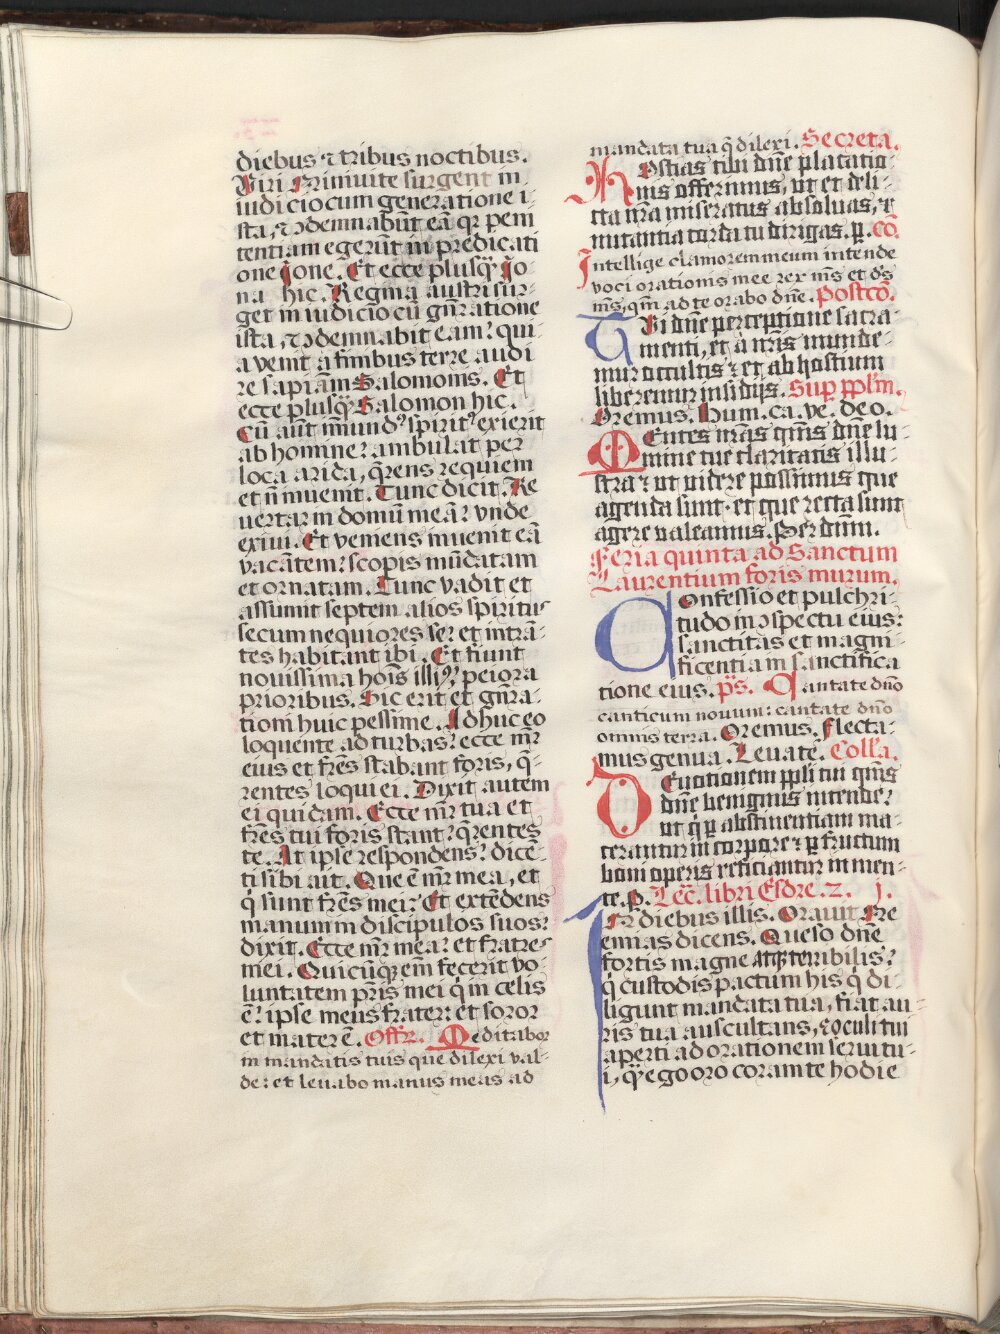 diebus ⁊ tribus noctibus.
Viri Niniuite surgent in
iudicio cum generatione i-
sta, ⁊ ↄdemnabūt eā qꝛ peni
tentiam egerūt in predicati
one ione. Et ecce plusꝙ̃ io-
na hic. Regina austri sur-
get in iudicio cū gn̄ratione
ista, ⁊ ↄdemnabit eam: qui-
a venit a finibus terre audi
re sapiām Salomonis. Et
ecce plusꝙ̃ Salomon hic.
Cū aūt inmundꝰ spiritꝰ exierit
ab homine: ambulat per
loca arida, q̄rens requiem
et n̄ inuenit. Tunc dicit. Re
uertar in domū meā: vnde
exiui. Et veniens inuenit eā
vacāntem: scopis mūdatam
et ornatam. Tunc vadit et
assumit septem alios spiritus
secum nequiores se: et intrā-
tes habitant ibi. Et fiunt
nouissima hoīs illiꝰ: peiora
prioribus. Sic erit et gn̄ra-
tioni huic pessime. Adhuc eo
loquente ad turbas: ecce mr̄
eius et fr̄es stabant foris, q̄-
rentes loqui ei. Dixit autem
ei quidam. Ecce mr̄ tua et
fr̄es tui foris stant: q̄rentes
te. At ipse respondens: dicē-
ti sibi ait. Que ē mr̄ mea, et
q̇ sunt fr̄es mei: Et extēdens
manum in discipulos suos:
dixit. Ecce mr̄ mea: et fratres
mei. Quicūqꝫ em̄ fecerit vo-
luntatem pr̄is mei q̇ in celis
ē: ipse meus frater: et soror
et mater ē. Offꝛ. Meditabor
in mandatis tuis que dilexi val-
de: et leuabo manus meas ad
mandata tua q̄ dilexi. Secreta.
Hostias tibi dn̄e placatio-
nis offerimus, vt et deli-
cta nr̄a miseratus absoluas, ⁊
nutantia corda tu dirigas. p. Cō.
Intellige clamorem meum intende
voci orationis mee rex m̄s et ds̄
m̄s, qm̄ ad te orabo dn̄e. Postcō.
Tui dn̄e perceptione sacra-
menti, et a nr̄is munde-
mur occultis: et ab hostium
liberemur insidijs. Sup̄ ppl̄m.
Oremus. Hum. ca. ve. deo.
Mentes nr̄as qm̄s dn̄e lu-
mine tue claritatis illu-
stra: ut videre possimus que
agenda sunt. et que recta sunt
agere valeamus. Per dn̄m.
Feria quinta ad Sanctum
Laurentium foris murum.
Confessio et pulchri-
tudo in ↄspectu eius:
sanctitas et magni-
ficentia in sanctifica
tione eius. ps̄. Cantate dn̄o
canticum nouum: cantate dn̄o
omnis terra. Oremus. Flecta-
mus genua. Leuate. Coll̄a.
Deuotionem ppli tui qm̄s
dn̄e benignus intende:
ut q̇ p̱ abstinentiam ma-
cerantur in corpore: p̱ fructum
boni operis reficiantur in men-
te. P. Lec̄. libri Esdre. 2. j.
In diebus illis. Orauit Ne
emias dicens. Queso dn̄e
fortis magne atqꝫ terribilis:
q̇ custodis pactum his q̇ di-
ligunt mandata tua, fiat au-
ris tua auscultans, ⁊ oculi tui
aperti ad orationem serui tu-
i, ꝙ̃ ego oro coram te hodie